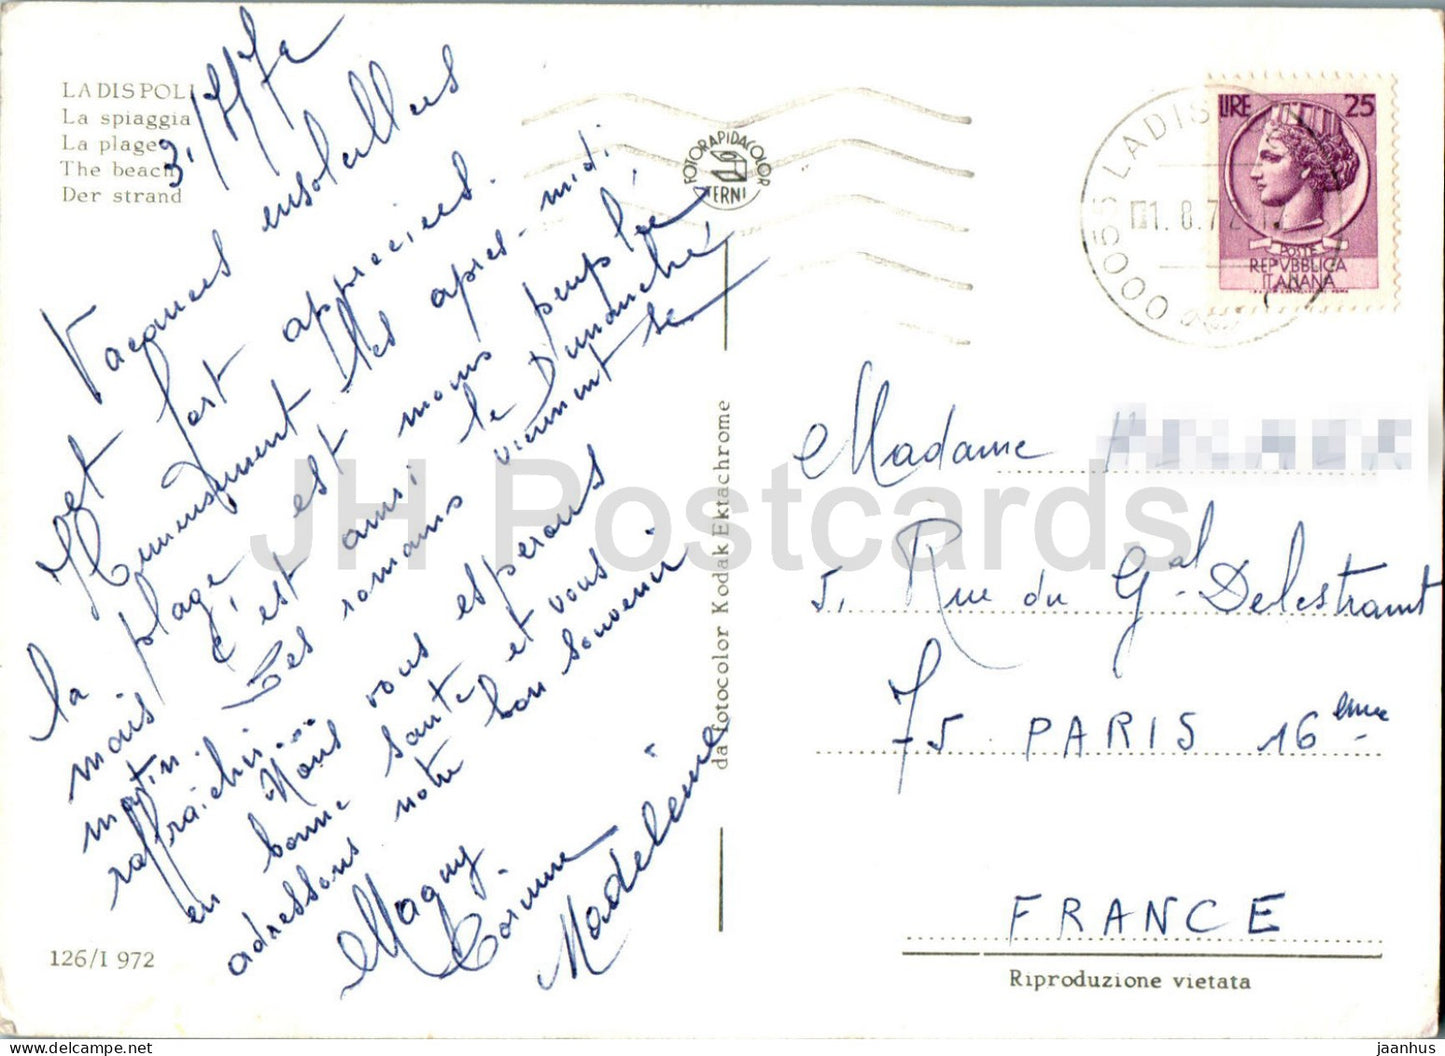 LADISPOLI
La spiaggia
La plage
The beach
Der strand
Vacances ensoleillées
et fort appréciées.
Heureusement les après-midi
la plage est moins peuplée,
mais c'est ainsi le Dimanche,
matin. Les romains viennent se
raffraîchir...
Nous vous espérons
en bonne santé et vous
adressons notre bon souvenir.
Magny.
Corinne
Madeleine
126/I 972
FOTORAPIDACOLOR
TERNI
da fotocolor Kodak Ektachrome
LIRE 25
POSTE
REPVBBLICA
ITALIANA
00055 LADIS
1.8.7
Madame
5, Rue du Gal Delestramt
75 PARIS 16ème
FRANCE
Riproduzione vietata
JH Postcards
HipPostcard.com
jaanhus